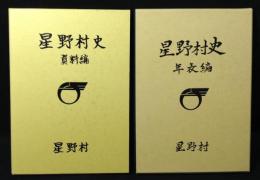 星野村史
資料編
星野村
星野村史
年表編
星野村